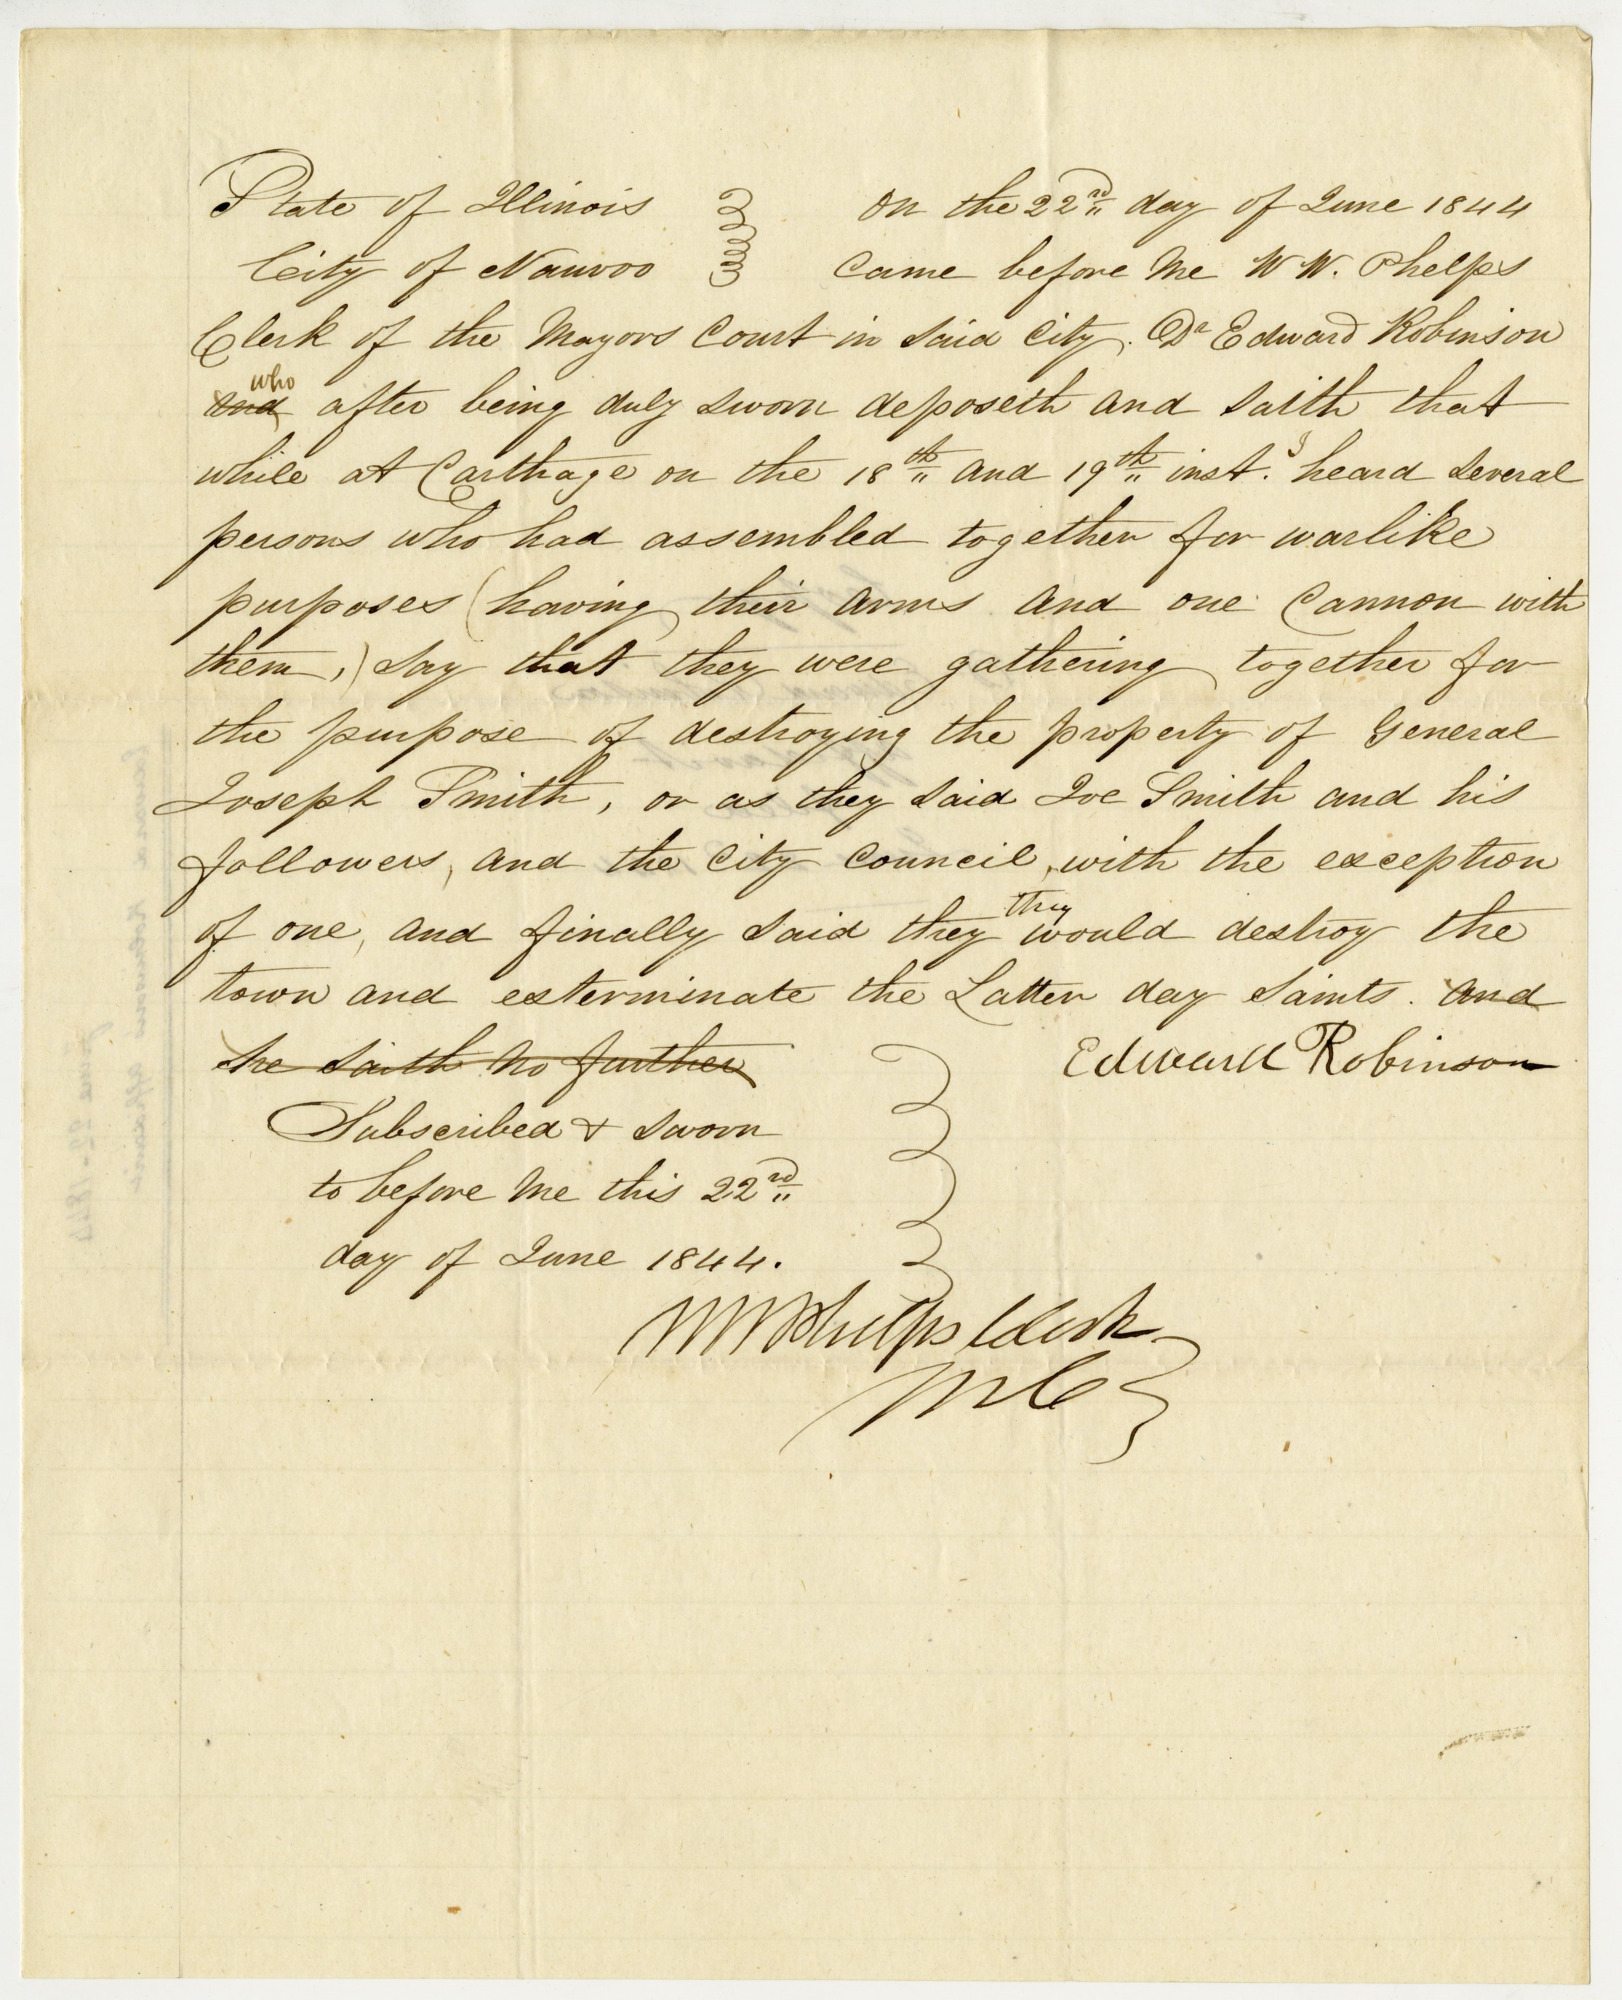 State of Illinois } On the 22nd day of June 1844
City of Nauvoo } came before me W W. Phelps
Clerk of the Mayors Court in said city. Dr Edward Robinson
and who after being duly sworn deposeth and saith that
while at Carthage on the 18th and 19th inst. I heard several
persons who had assembled together for warlike
purposes (having their arms and one cannon with
them,) say that they were gathering together for
the purpose of destroying the property of General
Joseph Smith, or as they said Joe Smith and his
followers, and the city council, with the exception
of one, and finally said they they would destroy the
town and exterminate the Latter day Saints. and
he saith no further Edward Robinson
Subscribed & sworn
to before me this 22nd
day of June 1844.
W W Phelps Clerk
M C